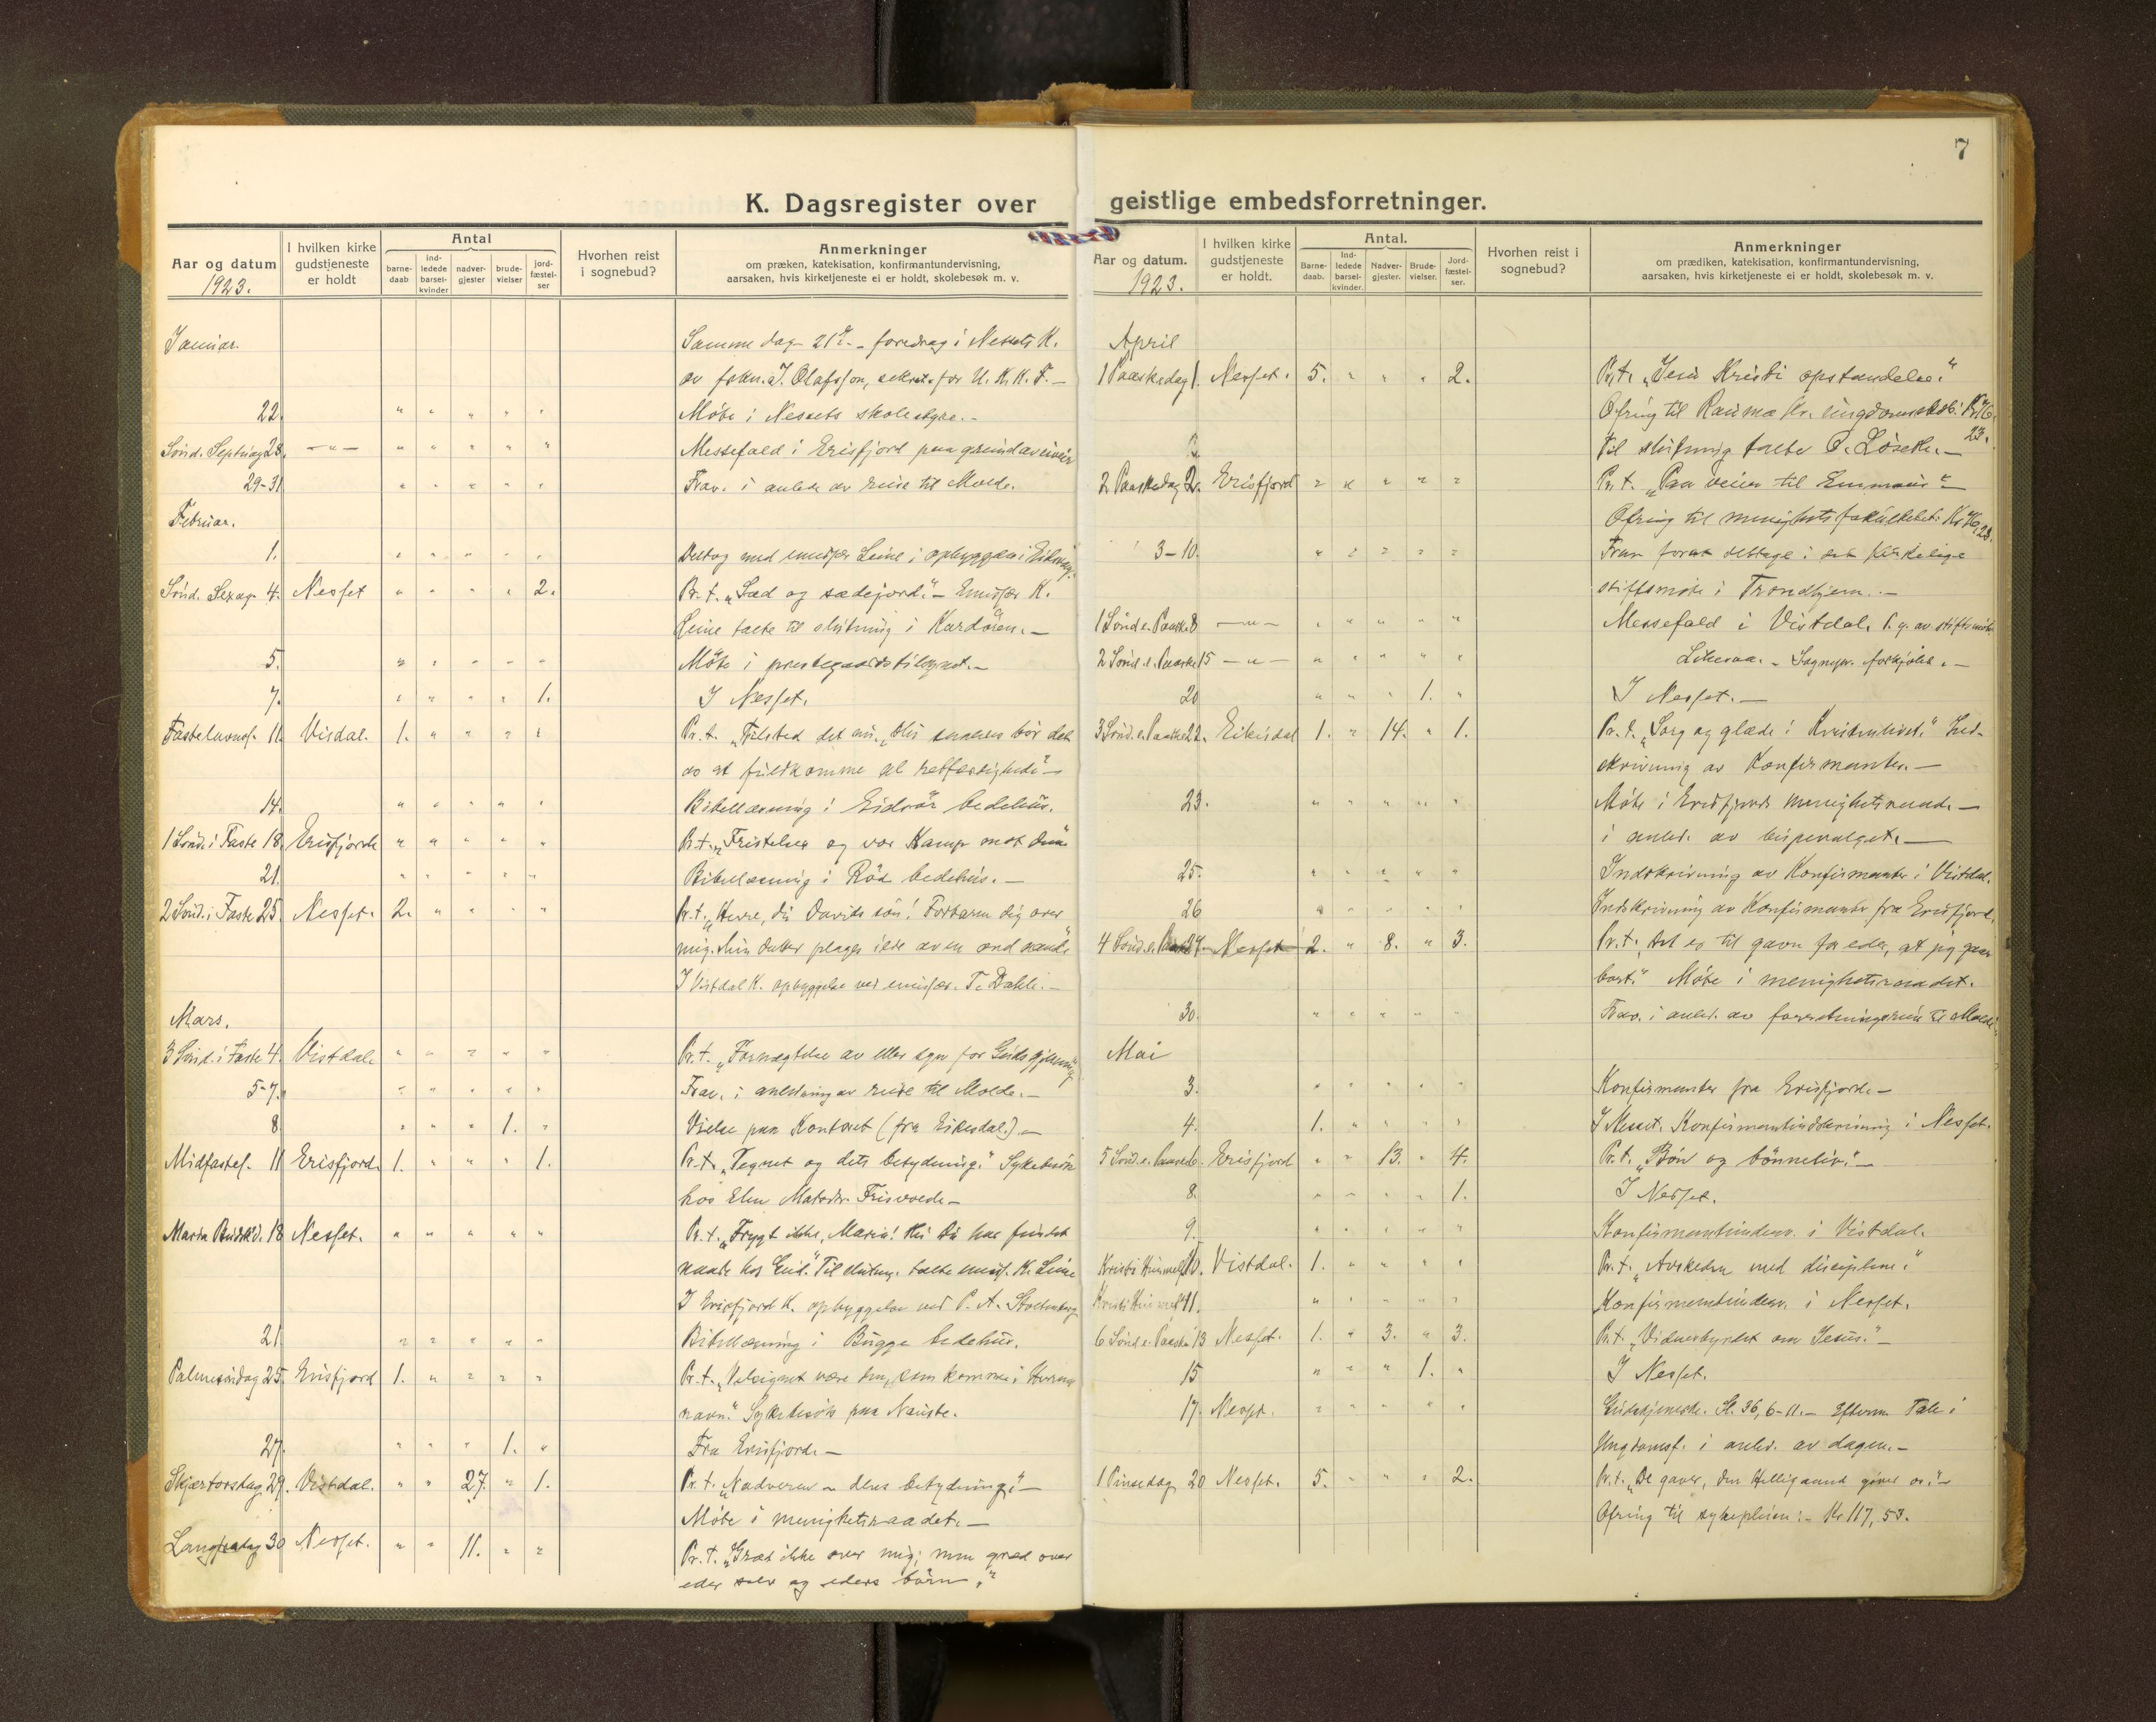 7
K. Dagsregister over geistlige embedsforretninger.
Aar og datum 1923. I hvilken kirke gudstjeneste er holdt Antal barne-daab ind-ledede barsel-kvinder nadver-gjester brude-vielser jord-fæstel-ser Hvorhen reist i sognebud? Anmerkninger om præken, katekisation, konfirmantundervisning, aarsaken, hvis kirketjeneste ei er holdt, skolebesøk m. v.
Januar. Samme dag 21de - foredrag i Nessets K.
av J. Olafsson, sekret. for U. K. K. F. -
22. " " " " " Møte i Nessets skolestyre. -
Sønd. Septuag. 28. -"- " " " " " Messefald i Erisfjord paa grund av uveir
29-31 " " " " " Frav. i anledn. av reise til Molde.
Februar.
1. " " " " " Deltog med emissær Leine i opbyggelse i
Sønd. Sexag. 4. Nesset " " " " 2. Pr. t. "Sæd og sædejord." - Emissær K.
Leine talte til slutning i Kordøren. -
5. " " " " " Møte i prestegaardstilsynet. -
7. " " " " 1. I Nesset.
Fastelavnss. 11. Visdal. 1. " " " " Pr. t. "Tilsted det nu, thi saaledes bør det
os at fuldkomme al retfærdighed." -
14. " " " " " Bibellæsning i Eidsvåg bedehus.
1 Sønd. i Faste 18. Erisfjord " " " " " Pr. t. "Fristelser og vor Kamp mot dem"
21. " " " " " Bibellæsning i Rød bedehus. -
2 Sønd. i Faste 25. Nesset. 2. " " " " Pr. t. "Herre, du Davids søn! Forbarm dig over
mig. Min datter plages ilde av en ond aand."
I Vistdal K. opbyggelse ved emissær. T. Dahle. -
Mars.
3 Sønd. i Faste 4. Vistdal " " " " " Pr. t. "Fornægtelse av eller syn for Guds gjerning"
5-7. " " " " " Frav. i anledning av reise til Molde. -
8. " " " 1. " Vielse paa Kontoret (fra Eikesdal.) -
Midfastes. 11 Erisfjord 1. " " " 1. Pr. t. "Tegnet og dets betydning." Sykebesøk
hos Elen Frisvold. -
Maria Budsk.d. 18 Nesset. " " " " " Pr. t. "Frygt ikke, Maria! Thi du har fundet
naade hos Gud." Til slutn. talte emiss. K. Leine
I Erisfjord K. opbyggelse ved P. A. Stoltenberg
21. " " " " " Bibellæsning i Bugge bedehus.
Palmesøndag 25. Erisfjord 1. " " " " Pr. t. "Velsignet være han, som kommer i Herrens
navn." Sykebesøk paa Nauste.
27. " " " 1. " Fra Erisfjord. -
Skjærtorsdag 29. Vistdal. " " 27. " 1. Pr. t. "Nadveren - dens betydning." -
Møte i menighetsraadet. -
Langfredag 30 Nesset. " " 11. " " Pr. t. "Græt ikke over mig; men græt over
eder selv og eders børn."
Aar og datum. 1923. I hvilken kirke gudstjeneste er holdt. Antal. Barne-daab. Ind-ledede barsel-kvinder. Nadver-gjester. Brude-vielser. Jord-fæstel-ser. Hvorhen reist i sognebud? Anmerkninger om prædiken, katekisation, konfirmantundervisning, aarsaken, hvis kirketjeneste ei er holdt, skolebesøk m. v.
April
1 Paaskedag 1. Nesset. 5. " " " 2. Pr. t. "Jesu Kristi opstandelse."
Ofring til Rauma Kr. ungdomsskole: Kr. 46,
23.
Til slutning talte O. Løseth. -
2 Paaskedag 2. Erisfjord " " " " " Pr. t. "Paa veien til Emmaus" -
Ofring til menighetsfakultetet: Kr. 46, 28.
3-10. " " " " " Frav. forat deltage i det kirkelige
stiftsmøte i Trondhjem. -
1 Sønd e. Paaske 8 -"- " " " " " Messefald i Vistdal. p. g. av stiftsmøte
2 Sønd. e. Paaske 15 -"- " " " " " Likesaa. -
20 " " " 1. " I Nesset. -
3 Sønd. e. Paaske 22. Eikisdal 1. " 14. " 1. Pr. t. "Sorg og glæde i Kristenlivet." Ind-
skrivning av Konfirmanter. -
23. " " " " " Møte i Erisfjords menighetsraad. -
i anled. av bispevalget. -
25. " " " " " Indskrivning av Konfirmanter i Vistdal.
26 " " " " " Indskrivning av Konfirmanter fra Erisfjord.
4 Sønd. e. Paaske Nesset 2. " 8. " 3. Pr. t. "Det er til gavn for eder, at jeg gaar
bort." Møte i menighetsraadet.
30. " " " " " Frav. i anled. av forretningsreise til Molde.
Mai
3. " " " " " Konfirmanter fra Erisfjord. -
4. 1. " " " " I Nesset. Konfirmantindskrivning i Nesset.
5 Sønd. e. Paaske 6. Erisfjord " " 13. " 4. Pr. t. "Bøn og bønneliv." -
8. " " " " 1. I Nesset.
9. " " " " " Konfirmantunderv. i Vistdal.
Kristi Himmelf. 10. Vistdal. 1. " " " " Pr. t. "Avskeden med disciplene."
11. " " " " " Konfirmantunderv. i Nesset.
6 Sønd. e. Paaske 13 Nesset. 1. " 3. " 3. Pr. t. "Vidnesbyrdet om Jesus." -
15 " " " 1. " I Nesset.
17. Nesset. " " " " " Gudstjeneste. Sl. 36, 6-11. - Efterm. Tale i
Ungdomsf. i anled. av dagen. -
1 Pinsedag 20 Nesset. 5. " " " 2. Pr. t. "De gaver, den Helligaand giver os." -
Ofring til sykepleien: - Kr. 117, 53.